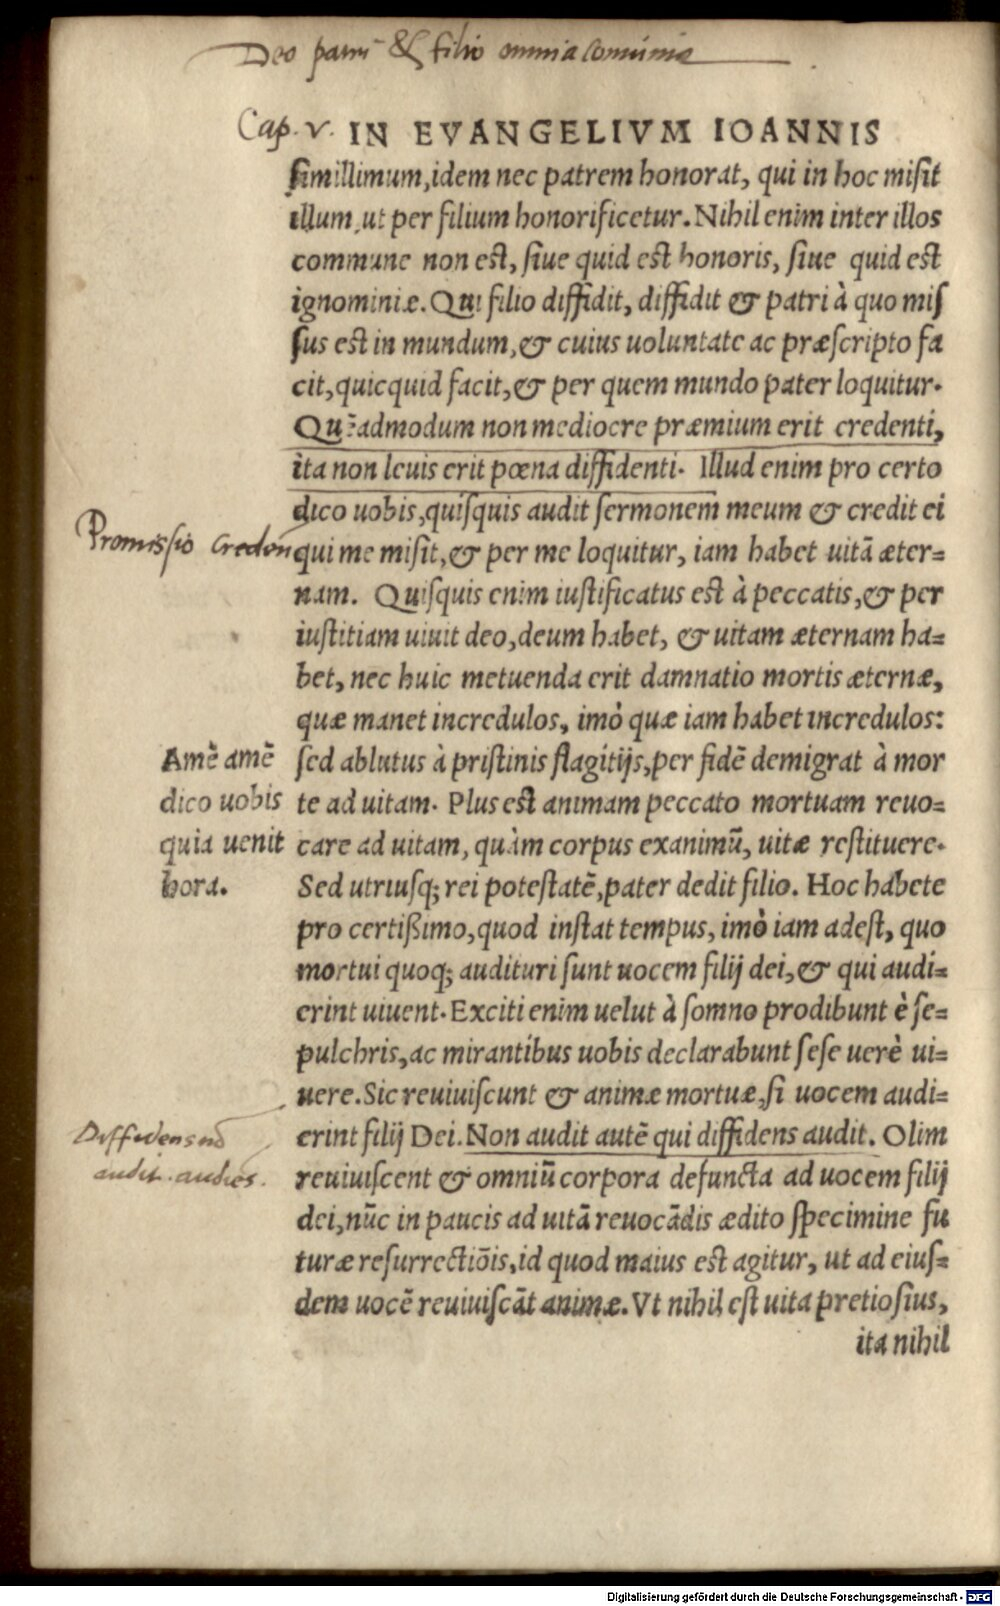 Deo patri & filio omnia comunia
Cap. v. IN EVANGELIVM IOANNIS
simillimum, idem nec patrem honorat, qui in hoc misit
illum, ut per filium honorificetur. Nihil enim inter illos
commune non est, siue quid est honoris, siue quid est
ignominiæ. Qui filio diffidit, diffidit & patri à quo mis
sus est in mundum, & cuius uoluntate ac præscripto fa
cit, quicquid facit, & per quem mundo pater loquitur.
Quẽadmodum non mediocre præmium erit credenti,
ita non leuis erit pœna diffidenti. Illud enim pro certo
dico uobis, quisquis audit sermonem meum & credit ei
Promissio Creden
qui me misit, & per me loquitur, iam habet uitã æter=
nam. Quisquis enim iustificatus est à peccatis, & per
iustitiam uiuit deo, deum habet, & uitam æternam ha=
bet, nec huic metuenda erit damnatio mortis æternæ,
quæ manet incredulos, imò quæ iam habet incredulos:
Amẽ amẽ
dico uobis
quia uenit
hora.
sed ablutus à pristinis flagitijs, per fidẽ demigrat à mor
te ad uitam. Plus est animam peccato mortuam reuo=
care ad uitam, quàm corpus exanimũ, uitæ restituere.
Sed utriusq; rei potestatẽ, pater dedit filio. Hoc habete
pro certißimo, quod instat tempus, imò iam adest, quo
mortui quoq; audituri sunt uocem filij dei, & qui audi=
erint uiuent. Exciti enim uelut à somno prodibunt è se=
pulchris, ac mirantibus uobis declarabunt sese uerè ui=
uere. Sic reuiuiscunt & animæ mortuæ, si uocem audi=
Diffidens nõ
audit audiẽs.
erint filij Dei. Non audit autẽ qui diffidens audit. Olim
reuiuiscent & omniũ corpora defuncta ad uocem filij
dei, nũc in paucis ad uitã reuocãdis ædito specimine fu
turæ resurrectiõis, id quod maius est agitur, ut ad eius=
dem uocẽ reuiuiscãt animæ. Vt nihil est uita pretiosius,
ita nihil
Digitalisierung gefördert durch die Deutsche Forschungsgemeinschaft - DFG